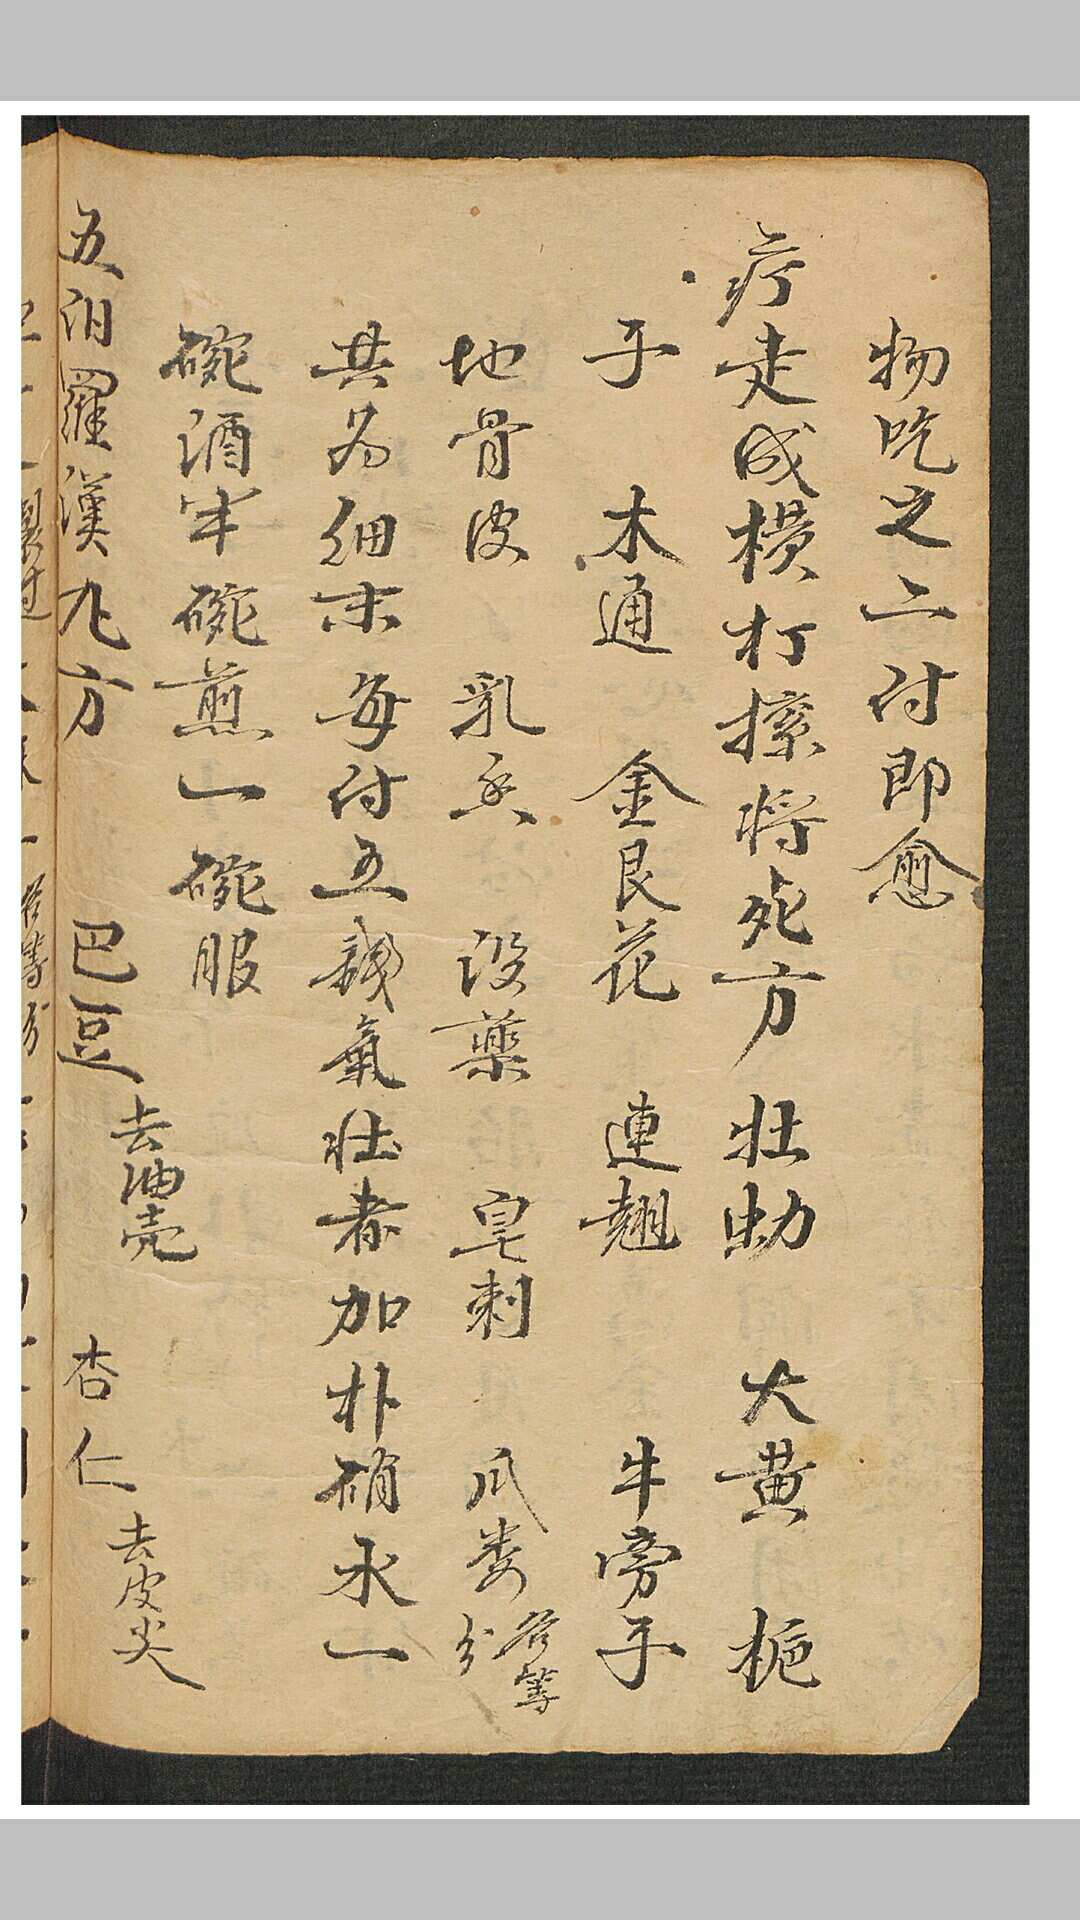 物吃之二付即愈
疔走成横打搽将死方 壮蚴 大黄 栀
子 木通 金艮花 連翘 牛旁子
地骨皮 乳香 没藥 皂刺 瓜娄 各等分
共為細末每付五錢氣壮者加朴硝水一
碗酒半碗煎一碗服
五汨羅漢九方 巴豆 去油壳 杏仁 去皮尖